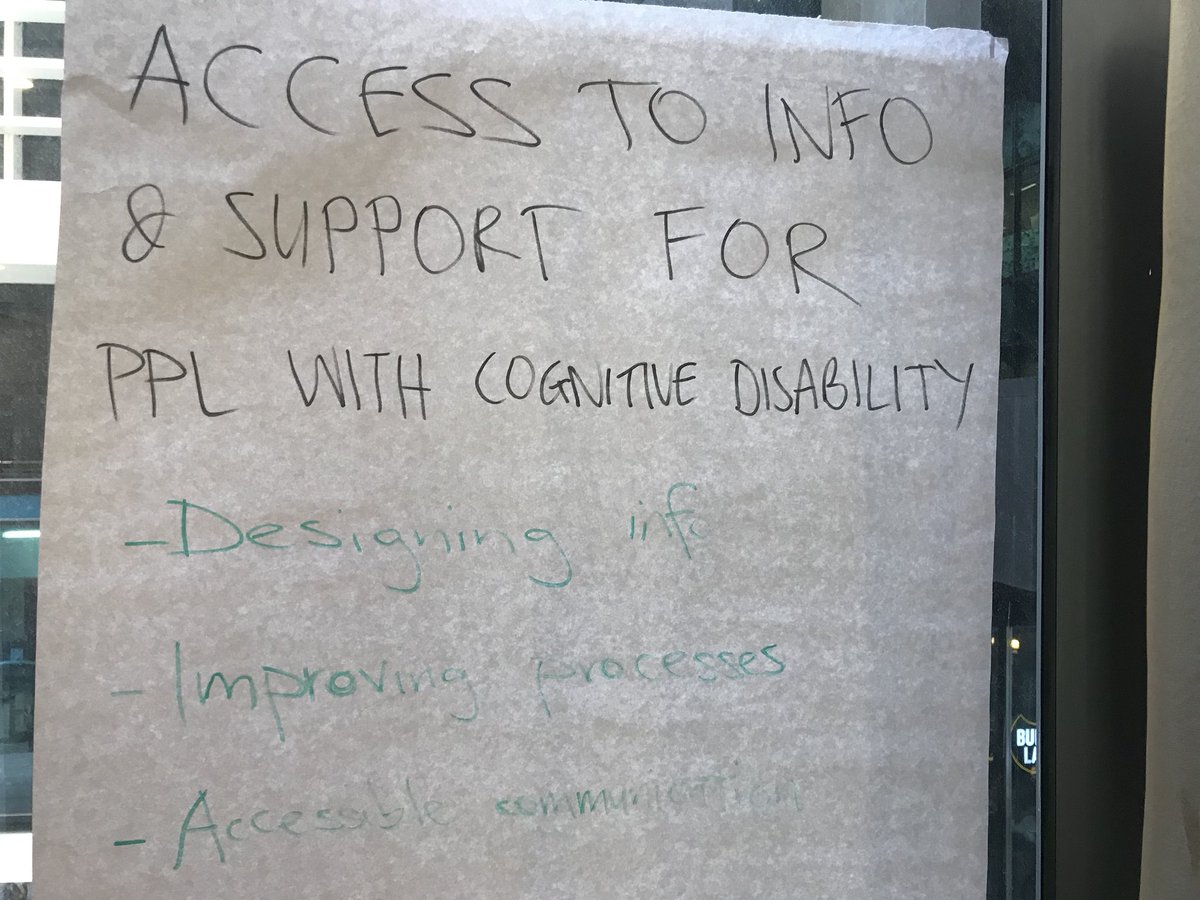 ACCESS TO INFO
& SUPPORT FOR
PPL WITH COGNITIVE DISABILITY
- Designing info
- Improving processes
- Accessable communication